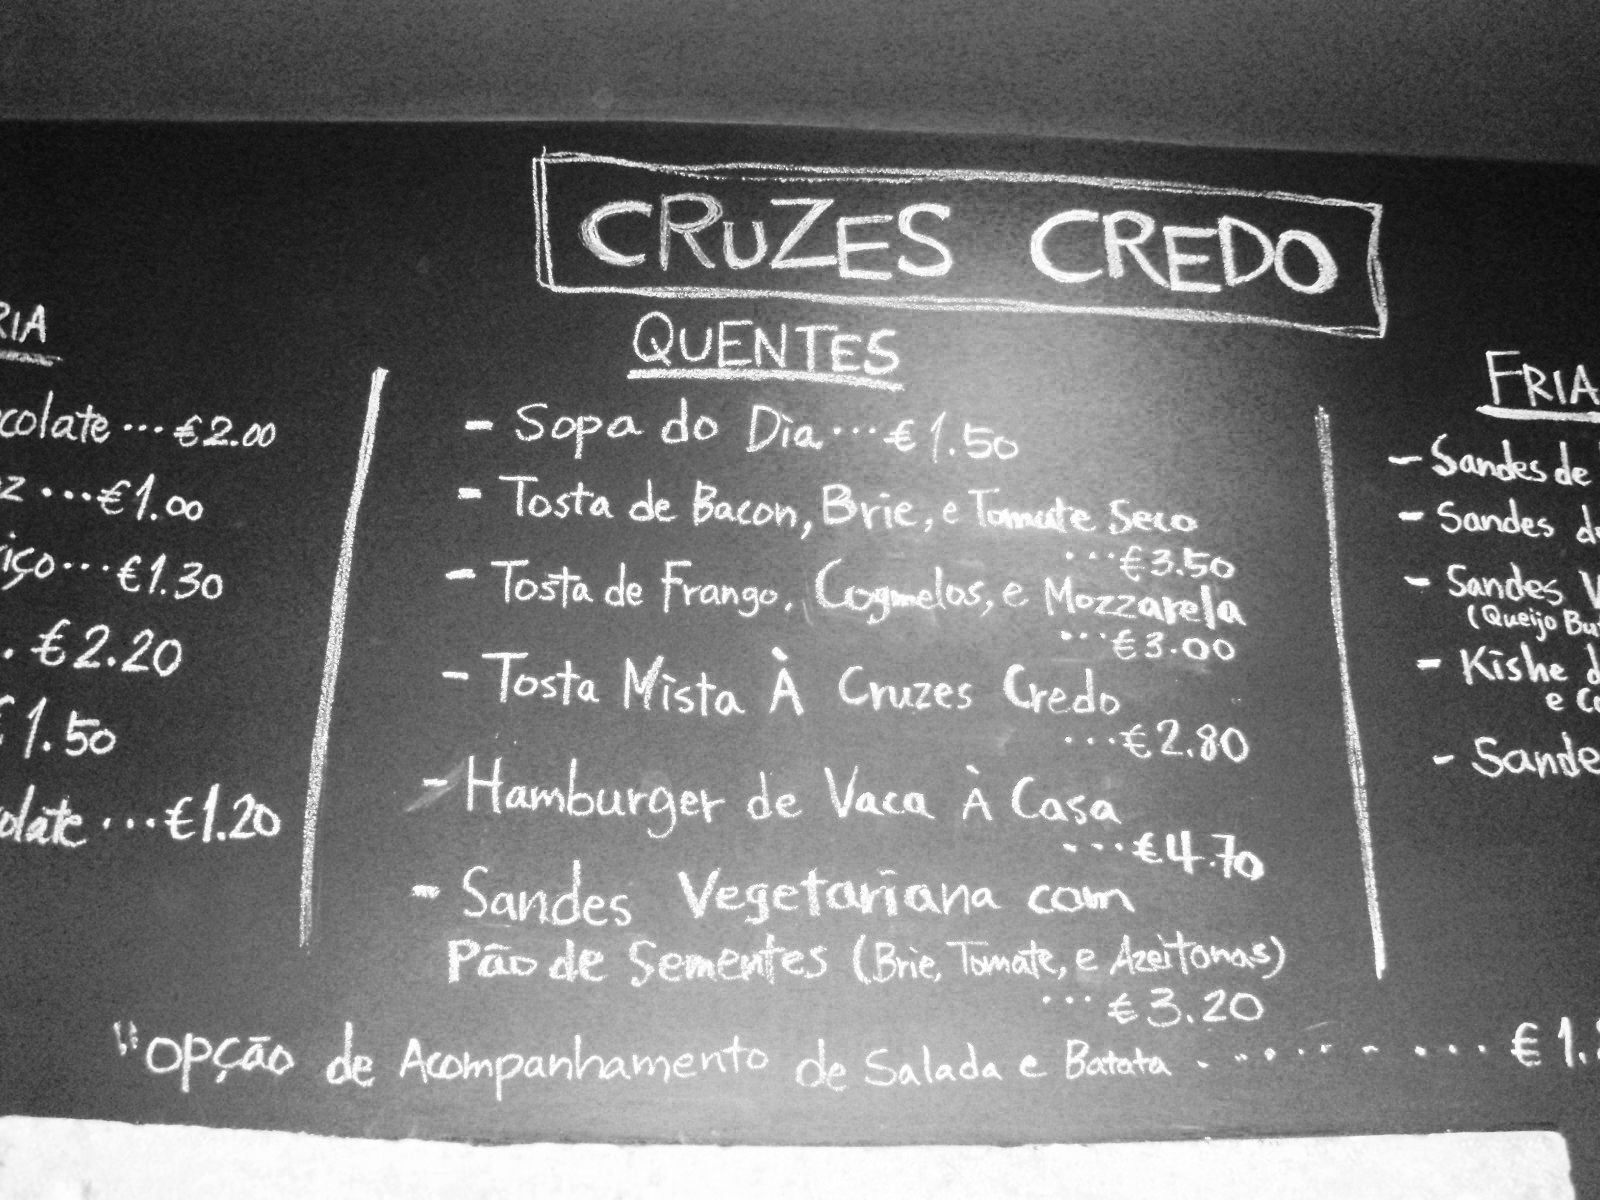 CRUZES CREDO
RIA
colate ... €2.00
z ... €1.00
iço ... €1.30
.. €2.20
€1.50
olate ... €1.20
QUENTES
- Sopa do Dia ... €1.50
- Tosta de Bacon, Brie, e Tomate Seco
... €3.50
- Tosta de Frango, Cogmelos, e Mozzarela
... €3.00
- Tosta Mista À Cruzes Credo
... €2.80
- Hamburger de Vaca À Casa
... €4.70
- Sandes Vegetariana com
Pão de Sementes (Brie, Tomate, e Azeitonas)
... €3.20
FRIA
- Sandes de
- Sandes d
- Sandes V
(Queijo Bu
- Kishe d
e Co
- Sande
"OPÇÃO de Acompanhamento de Salada e Batata ............ €1.